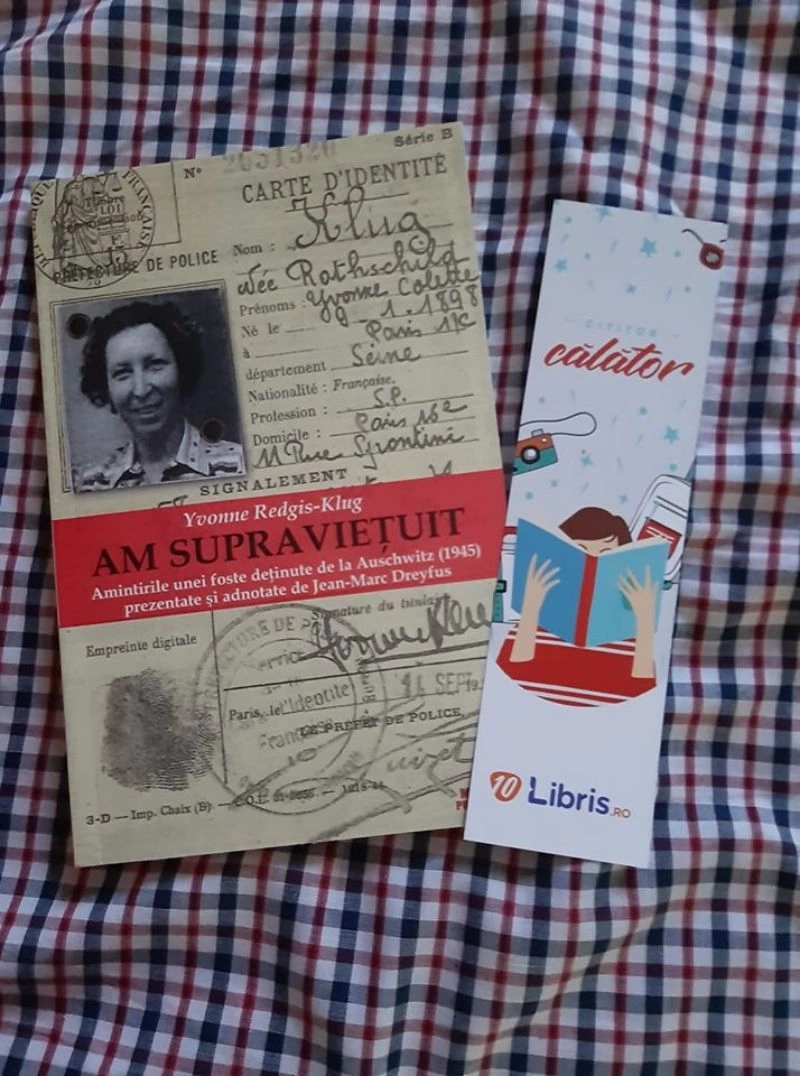 Série B
N° 2051320
CARTE D'IDENTITÉ
PRÉFECTURE DE POLICE
Nom : Klug
née Rothschild
Prénoms : Yvonne Colette
Né le 9.1.1898
à Paris
département Seine
Nationalité : Française.
Profession : S.P.
Domicile : Paris 16e
11 Rue Spontini
SIGNALEMENT
Yvonne Redgis-Klug
AM SUPRAVIEȚUIT
Amintirile unei foste deținute de la Auschwitz (1945)
prezentate și adnotate de Jean-Marc Dreyfus
Signature du titulaire
Empreinte digitale
Paris, le
14 SEPT
LE PRÉFET DE POLICE,
3-D — Imp. Chaix (B)
CITITOR
călător
10 Libris.RO